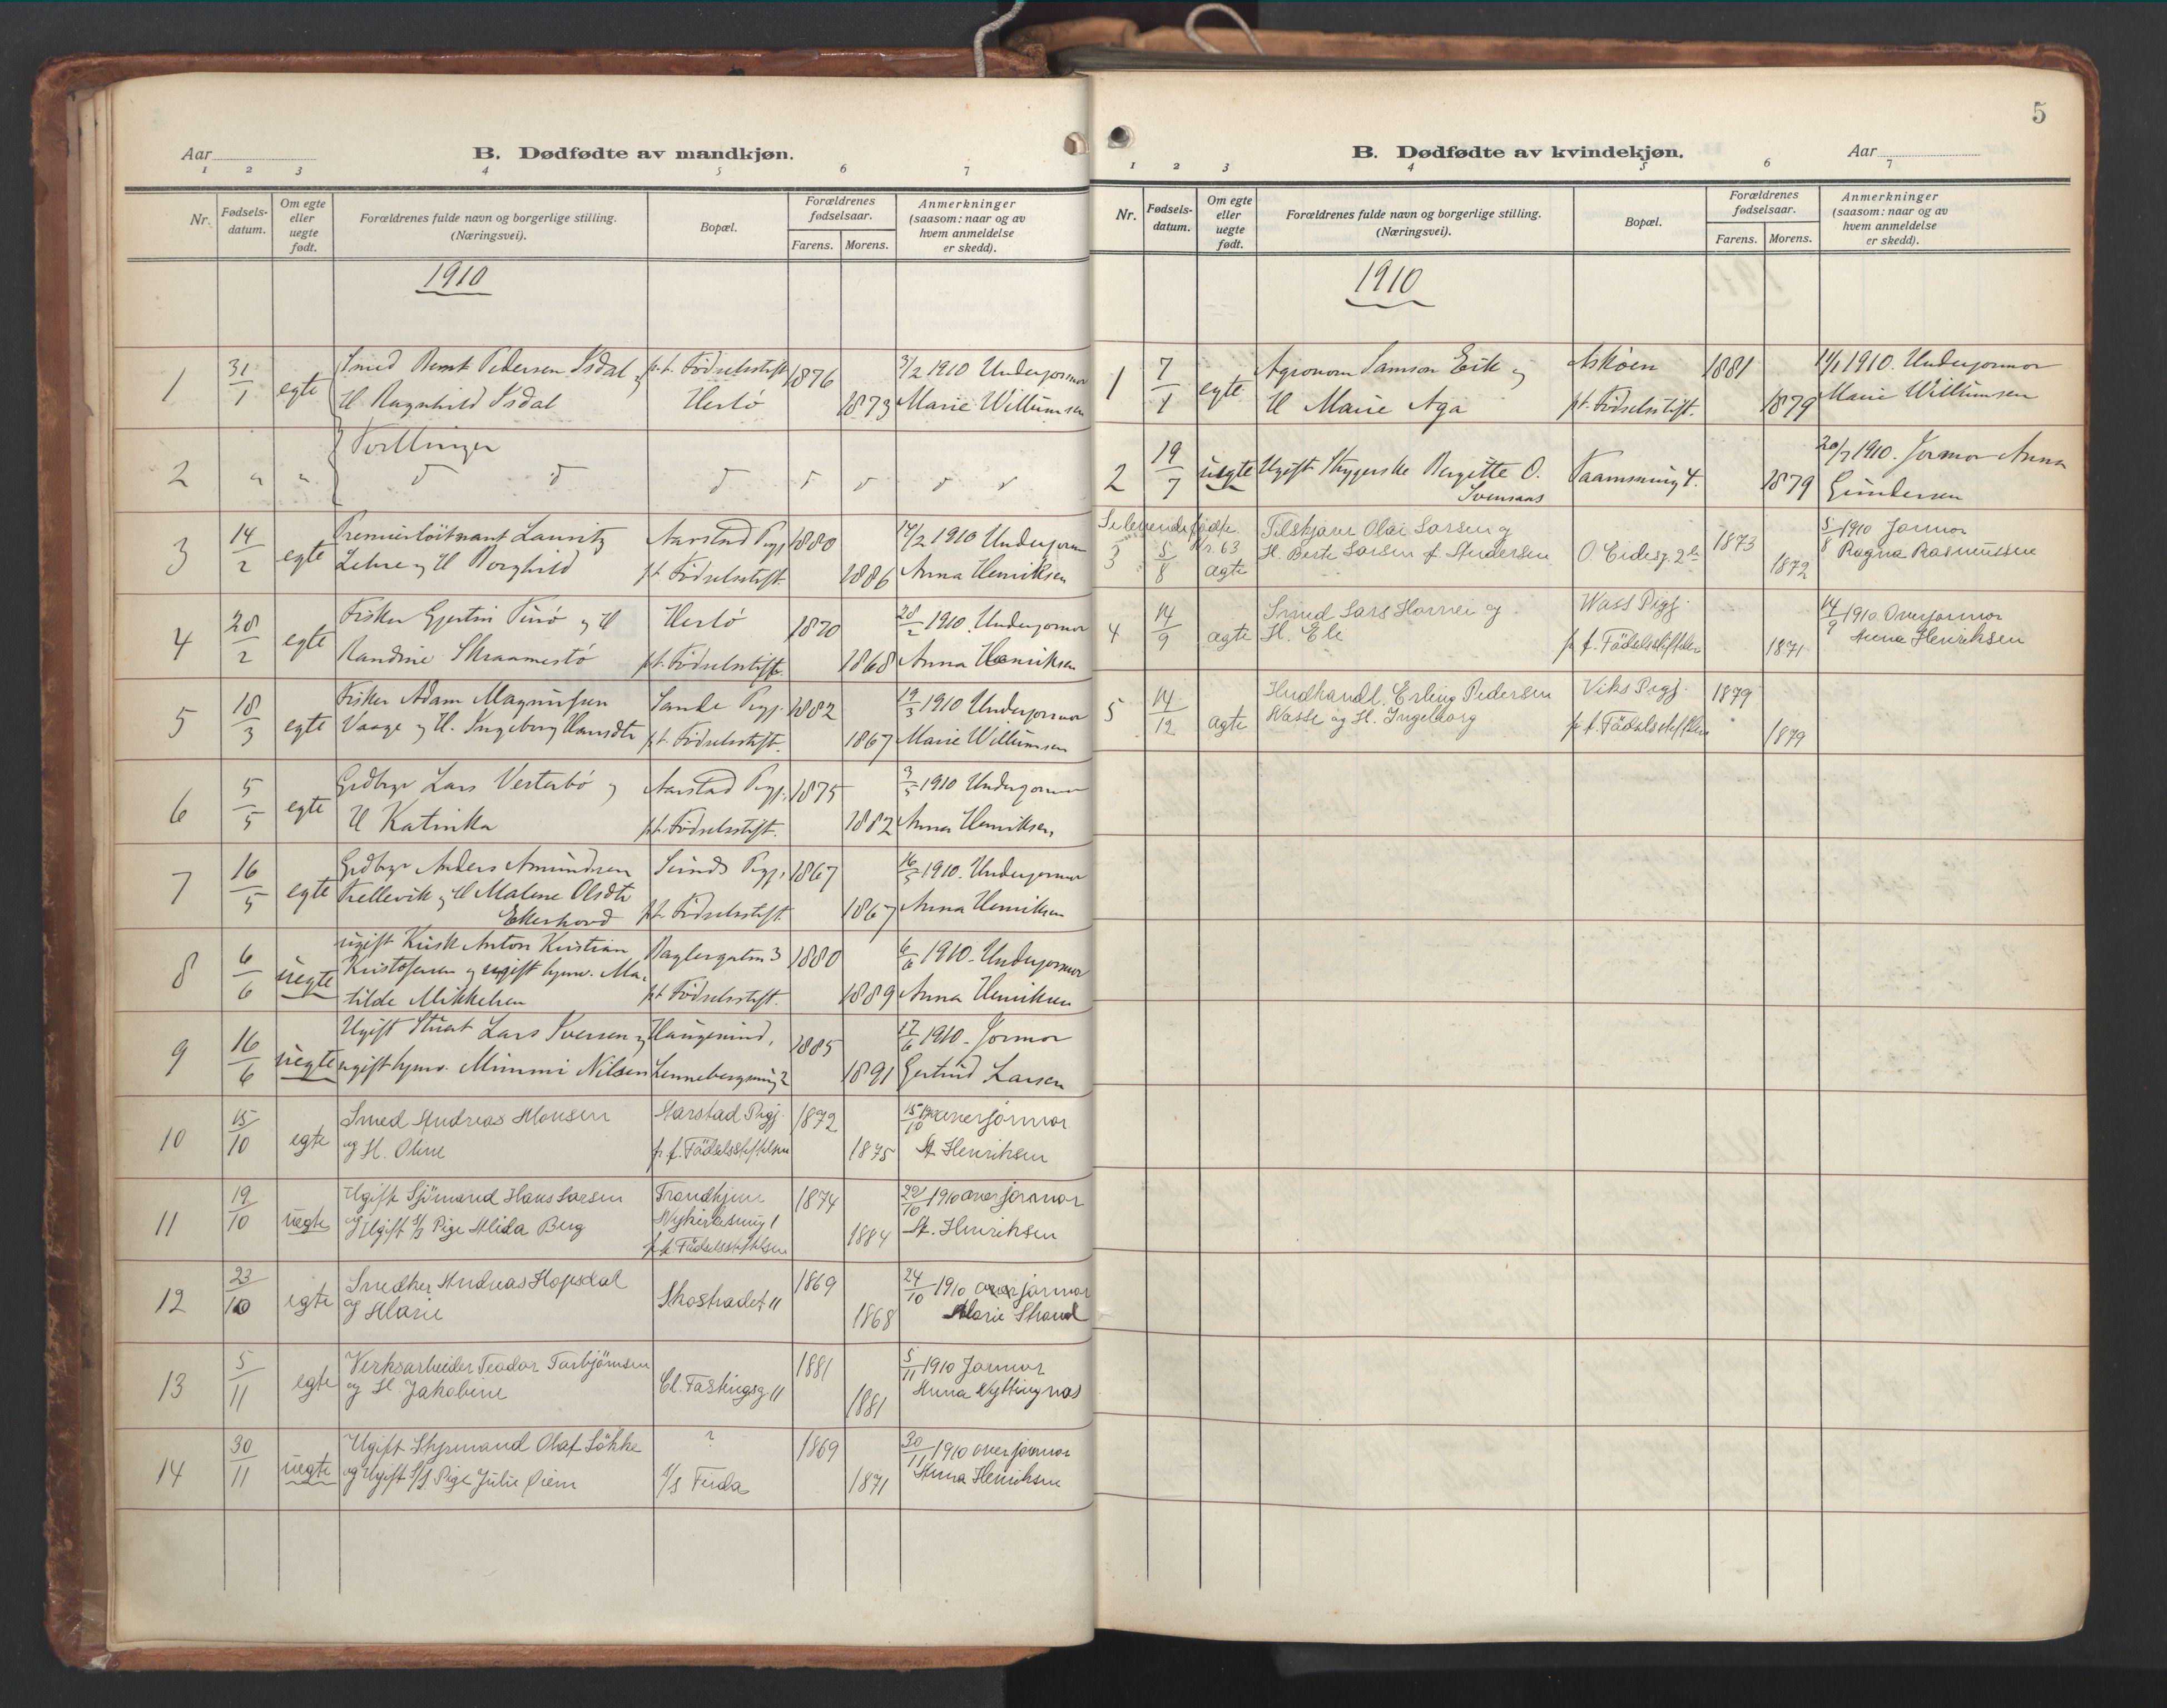 Aar
B. Dødfødte av mandkjøn.
1 2 3 4 5 6 7
Nr.
Fødsels-
datum.
Om egte
eller
uegte
født.
Forældrenes fulde navn og borgerlige stilling.
(Næringsvei).
Bopæl.
Forældrenes
fødselsaar.
Farens. Morens.
Anmerkninger
(saasom: naar og av
hvem anmeldelse
er skedd).
1910
1 31/1 egte
Smed Bernt Pedersen Isdal og
H Ragnhild Isdal
p.t. Födselsstift
Herlö
1876
1873
3/2 1910 Underjormor
Marie Willumsen
2 " "
Tvillinger
3 14/2 egte
Premierlöitnant Lauritz
Lehre og H Borghild
Aarstad Prgj.
p.t. Födselsstift.
1880
1886
14/2 1910 Underjorm
Anna Henriksen
4 28/2 egte
Fisker Gjertin Turö og H
Randine Skraamestö
Herlö
p.t. Födselsstift.
1870
1868
28/2 1910. Underjormor
Anna Henriksen
5 18/3 egte
Fisker Adam Magnussen
Vaage og H. Ingeborg Hansdtr
Sande Prgj.
p.t. Födselsstift.
1882
1867
19/3 1910 Underjormor
Marie Willumsen
6 5/5 egte
Grdbr. Lars Vesterbö og
H Katinka
Aarstad Prgj.
p.t. Födselsstift.
1875
1882
1910 Underjormor
Anna Henriksen
7 16/5 egte
Grdbr. Anders Amundsen
Kellevik og H Malene Olsdtr
Ekerhovd
Sunds Prgj.
p.t. Födselsstift.
1867
1867
16/5 1910. Underjormor
Anna Henriksen
8 6/6 uegte
ugift Kusk Anton Kristian
Kristofersen og ugift hjmv. Ma-
tilde Mikkelsen
Baglergaten 3
p.t. Födselsstift.
1880
1889
6/6 1910. Underjormor
Anna Henriksen
9 16/6 uegte
Ugift Stuert Lars Iversen og
ugift hjmv. Mimmi Nilsen
Haugesund,
Lennebergsmug 2
1885
1891
17/6 1910. Jormor
Gertrud Larsen
10 15/10 egte
Smed Andreas Monsen
og H. Oline
Aarstad Prgj.
p. t. Födselsstiftelsen
1872
1875
15/10 1910 overjormor
A. Henriksen
11 19/10 uegte
Ugift Sjömand Hans Larsen
og Ugift s/s Pige Alida Berg
Trondhjem
Nykirkesmug 1
p. t. Födselsstiftelsen
1874
1884
20/10 1910 overjormor
A. Henriksen
12 23/10 egte
Snedker Andreas Hopsdal
og Marie
Skostradet 11
1869
1868
24/10 1910 overjormor
Marie Strand
13 5/11 egte
Verksarbeider Teodor Torbjörnsen
og H Jakobine
Cl. Fastingsg 11
1881
1881
5/11 1910 Jormor
Anna Nyttingnes
14 30/11 uegte
Ugift Styrmand Olaf Lökke
og Ugift s/s. Pige Julie Öiem
?
s/s Firda
1869
1871
30/11 1910 overjormor
Anna Henriksen
5
B. Dødfødte av kvindekjøn.
Aar
1 2 3 4 5 6 7
Nr.
Fødsels-
datum.
Om egte
eller
uegte
født.
Forældrenes fulde navn og borgerlige stilling.
(Næringsvei).
Bopæl.
Forældrenes
fødselsaar.
Farens. Morens.
Anmerkninger
(saasom: naar og av
hvem anmeldelse
er skedd).
1910
1 7/1 egte
Agronom Samson Eik og
H Marie Aga
Asköen
p.t. Födselsstift.
1881
1879
11/1 1910. Underjormor
Marie Willumsen
2 19/7 uegte
Ugift Strygerske Bergitte O.
Svensaas
Kaamsmug 4.
1879
20/7 1910. Jormor Anna
Gundersen
Se levendefödte
Nr. 63
3 5/8 ægte
Tilskjærer Olai Larsen og
H. Berte Larsen f. Andersen
O. Eidesg. 2
1873
1872
5/8 1910 Jormor
Ragna Rasmussen
4 14/9 ægte
Smed Lars Hornei og
H. Eli
Wass Prgj.
p. t. Födselsstiftelsen
1871
14/9 1910 Overjormor
Anna Henriksen
5 14/12 ægte
Hudhandl. Erling Pedersen
Wasse og H. Ingeborg
Viks Prgj.
p. t. Födselsstiftelsen
1879
1879